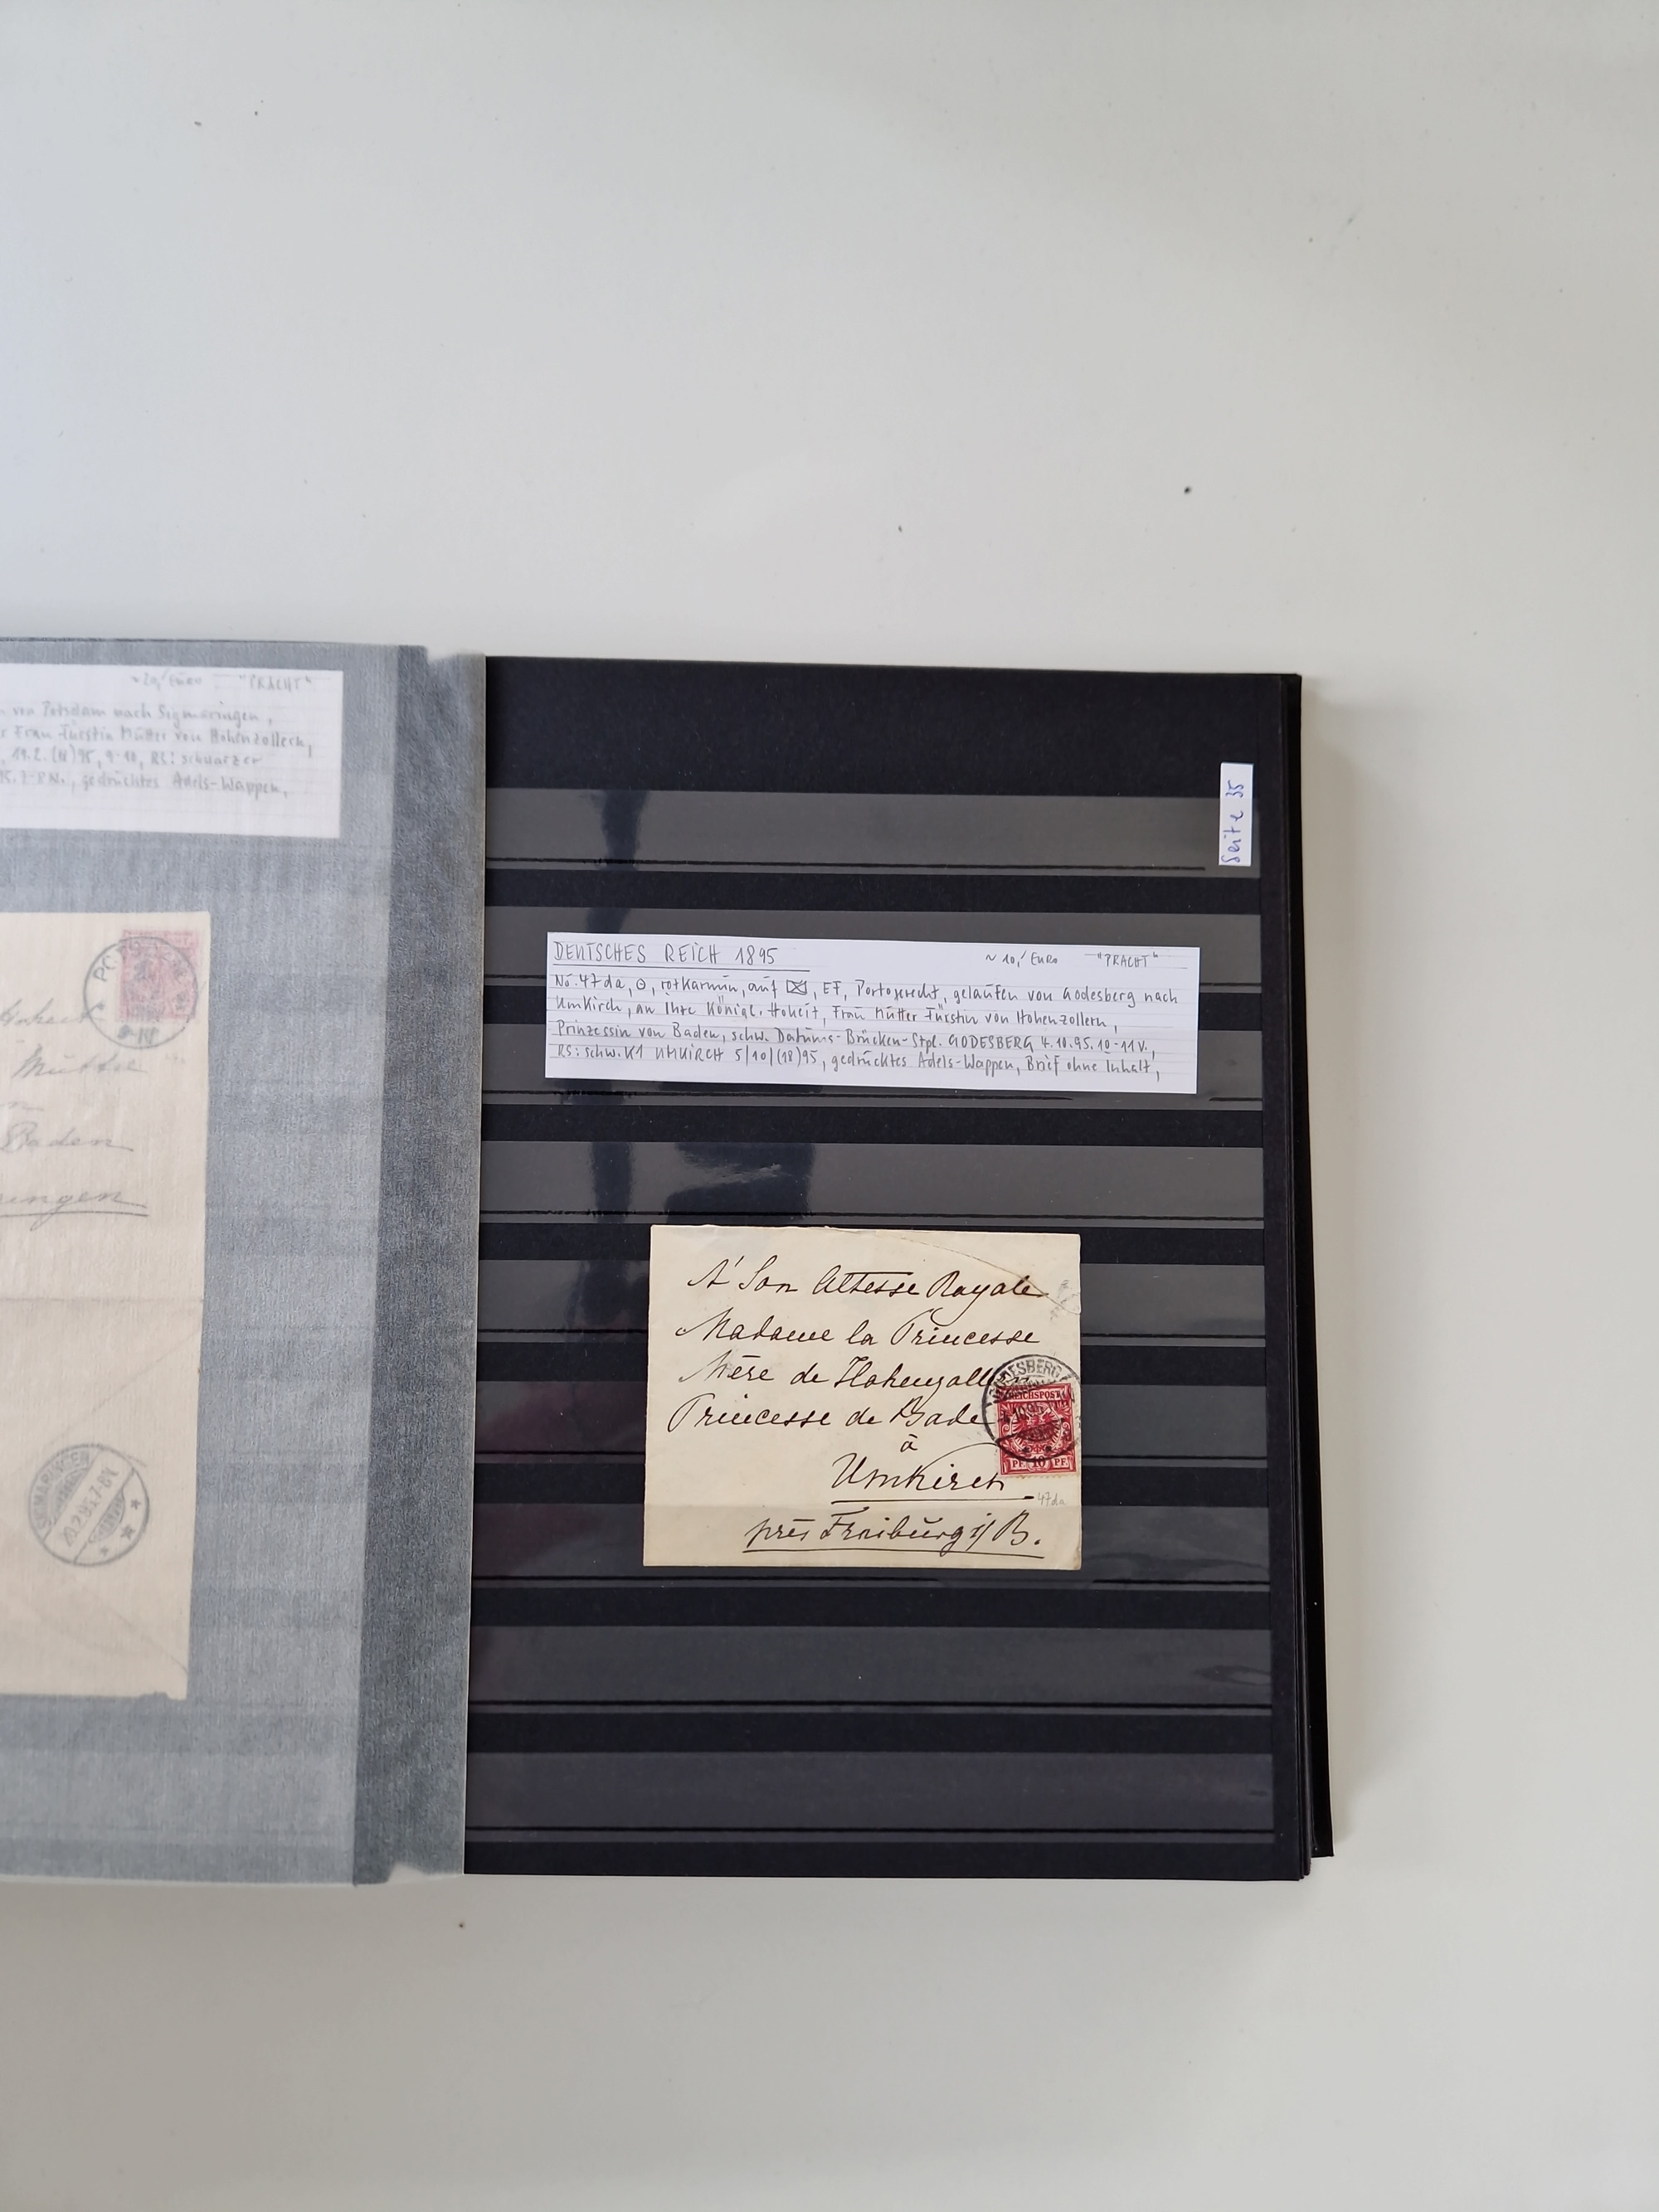 ~ 20,/ Euro "PRACHT"
von Potsdam nach Sigmaringen,
Frau Fürstin Mütter von Hohenzollern,
19.2.(18)95, 9-10, RS: schwarzer
95.7-8N., gedrücktes Adels-Wappen,
Mutter
Baden
SIGMARINGEN
20.2.95.7-8N
Seite 35
DEUTSCHES REICH 1895 ~ 10,/ Euro "PRACHT"
No. 47da, ⊙, rotkarmin, auf ✉, EF, Portogerecht, gelaufen von Godesberg nach
Umkirch, an Ihre Königl. Hoheit, Frau Mütter Fürstin von Hohenzollern,
Prinzessin von Baden, schw. Datums-Brücken-Stpl. GODESBERG 4.10.95.10-11V.,
RS: schw. K1 UMKIRCH 5/10/(18)95, gedrücktes Adels-Wappen, Brief ohne Inhalt,
A' Son Altesse Royale
Madame la Princesse
Mère de Hohenzollern
Princesse de Bade
à
Umkirch
près Freiburg i/B.
GODESBERG
REICHSPOST
PF. 10 PF.
47da